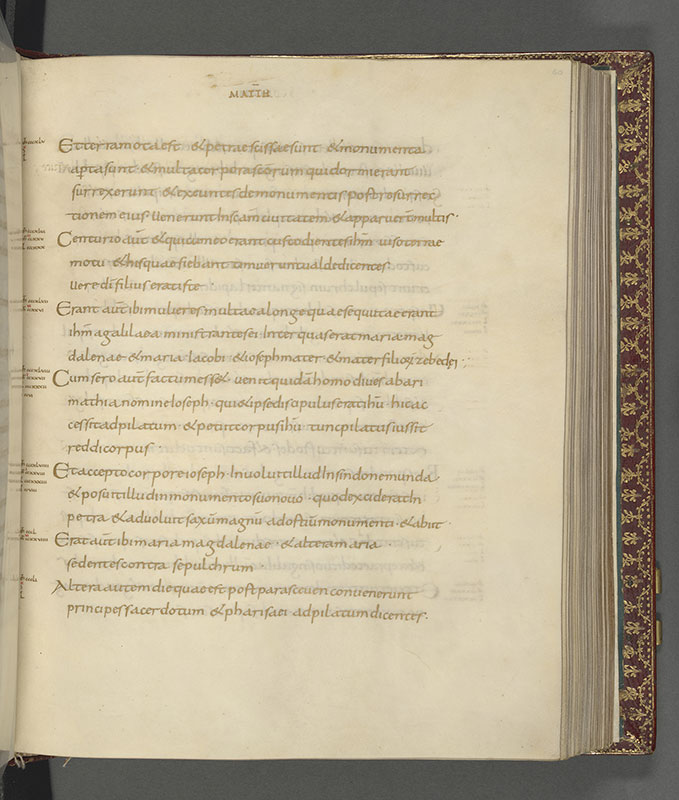 MATTH
Et terra mota est & petrae scissae sunt & monumenta
aperta sunt & multa corpora scōrum qui dormierant
surrexerunt & exeuntes de monumentis post resurrec
tionem eius venerunt In scām civitatem & apparuerūt multis ·
Centurio aūt & qui cum eo erant custodientes ihm̄ viso terrae
motu & his quae fiebant timuerunt valde dicentes
vere dī filius erat iste
Erant aūt ibi mulieres multae a longe quae secutae erant
ihm̄ a galilaea ministrantes ei Inter quas erat maria mag
dalenae & maria Iacobi & ioseph mater & mater filiorum zebedei
Cum sero aūt factum esset venit quidā homo dives ab ari
mathia nomine Ioseph · qui & ipse discipulus erat ihū · hic ac
cessit ad pilatum & petiit corpus ihū tunc pilatus iussit
reddi corpus ·
Et accepto corpore ioseph · Involvit illud In sindone munda
& posuit illud in monumento suo novo · quod exciderat In
petra & advolvit saxū magnū ad ostiū monumenti & abiit
Erat aūt ibi maria magdalenae · & altera maria
sedentes contra sepulchrum ·
Altera autem die quae est post parasceuen convenerunt
principes sacerdotum & pharisaei ad pilatum dicentes ·